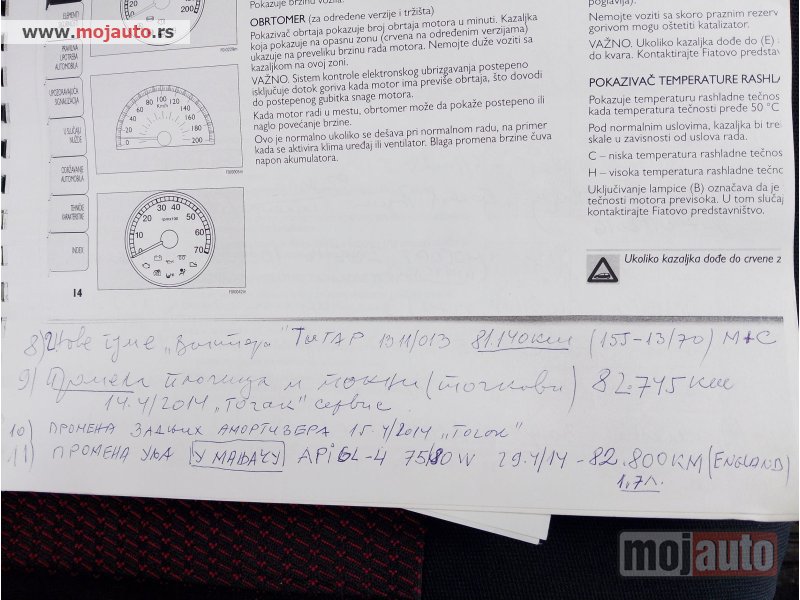 www.mojauto.rs
ELEMENTI
PRAVILNA
UPOTREBA
AUTOMOBILA
UPOZORAVAJUĆA
SIGNALIZACIJA
U SLUČAJU
NUŽDE
ODRŽAVANJE
AUTOMOBILA
TEHNIČKE
KARAKTERISTIKE
INDEX
14
Pokazuje brzinu vozila.
OBRTOMER (za određene verzije i tržišta)
Pokazivač obrtaja pokazuje broj obrtaja motora u minuti. Kazaljka
koja pokazuje na opasnu zonu (crvena na određenim verzijama)
ukazuje na preveliku brzinu rada motora. Nemojte duže voziti sa
kazaljkom na ovoj zoni.
VAŽNO. Sistem kontrole elektronskog ubrizgavanja postepeno
isključuje dotok goriva kada motor ima previše obrtaja, što dovodi
do postepenog gubitka snage motora.
Kada motor radi u mestu, obrtomer može da pokaže postepeno ili
naglo povećanje brzine.
Ovo je normalno ukoliko se dešava pri normalnom radu, na primer
kada se aktivira klima uređaj ili ventilator. Blaga promena brzine čuva
napon akumulatora.
poglavlja).
Nemojte voziti sa skoro praznim rezerv
gorivom mogu oštetiti katalizator.
VAŽNO. Ukoliko kazaljka dođe do (E)
do kvara. Kontaktirajte Fiatovo predstav
POKAZIVAČ TEMPERATURE RASHLA
Pokazuje temperaturu rashladne tečnos
kada temperatura tečnosti pređe 50 °C
Pod normalnim uslovima, kazaljka bi tre
skale u zavisnosti od uslova rada.
C – niska temperatura rashladne tečnos
H – visoka temperatura rashladne tečno
Uključivanje lampice (B) označava da je
tečnosti motora previsoka. U tom slučaj
kontaktirajte Fiatovo predstavništvo.
Ukoliko kazaljka dođe do crvene z
8) Нове гуме „ Тигар 81.140 км (155-13/70) M+C
9) Промена плочица и (точкови) 82.745 км
14.4/2014 „Точак" сервис.
10) ПРОМЕНА ЗАДЊИХ АМОРТИЗЕРА 15.4/2014 „Точак"
11) ПРОМЕНА УЉА У МЕЊАЧУ API GL-4 75/80W 29.4/14 - 82.800KM (ENGLAND)
1,7л.
mojauto